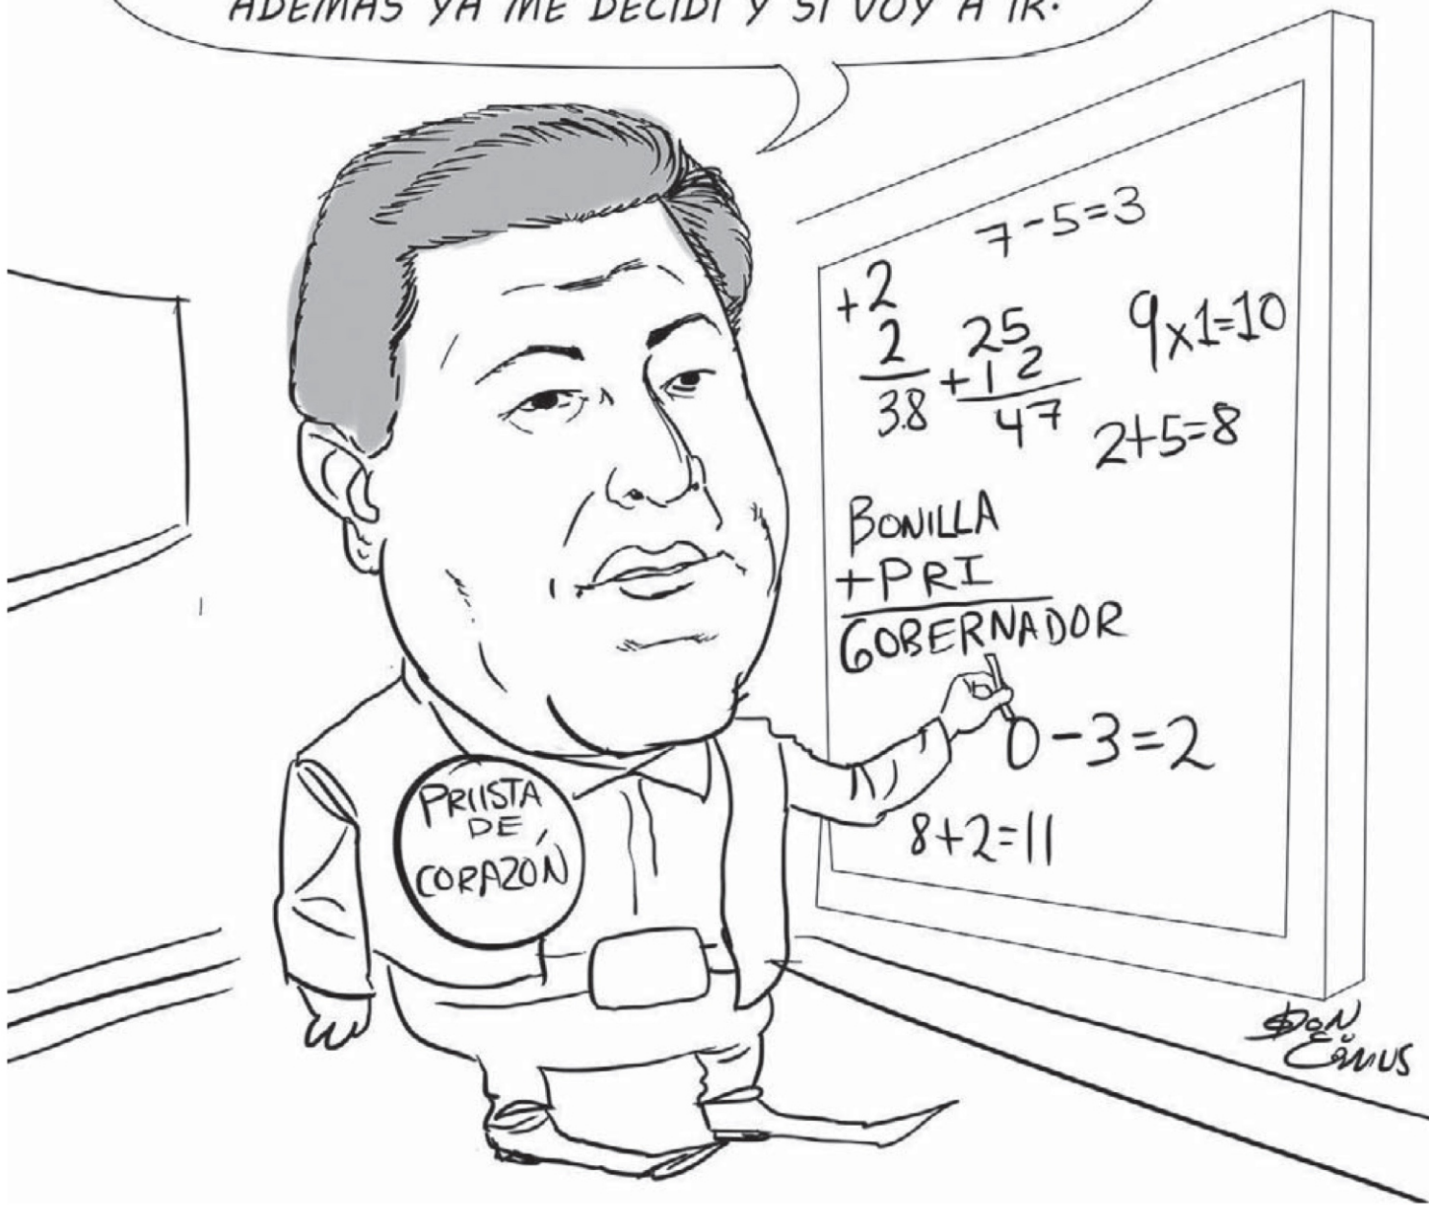 ADEMÁS YA ME DECIDÍ Y SÍ VOY A IR.
7-5=3
+2
2
38
25
+12
47
9x1=10
2+5=8
BONILLA
+PRI
GOBERNADOR
0-3=2
8+2=11
PRIISTA
DE
CORAZÓN